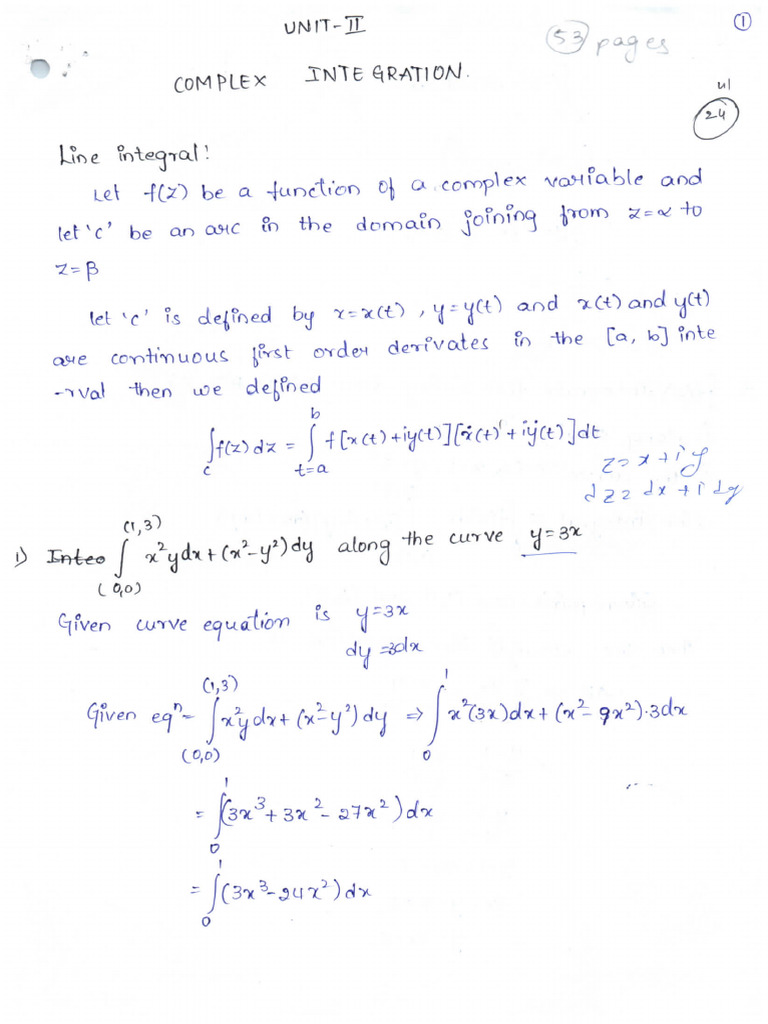 UNIT-II
①
53 pages
COMPLEX INTEGRATION.
ul
24
Line integral:
Let f(z) be a function of a complex variable and
let 'c' be an arc in the domain joining from z=α to
z=β
let 'c' is defined by x=x(t), y=y(t) and x(t) and y(t)
are continuous first order derivates in the [a, b] inte
-rval then we defined
∫_c f(z) dz = ∫_{t=a}^{b} f[x(t)+iy(t)][ẋ(t)'+iẏ(t)]dt
z=x+iy
dz=dx+idy
1) Inteo ∫_{(0,0)}^{(1,3)} x²ydx+(x²-y²)dy along the curve y=3x
Given curve equation is y=3x
dy=3dx
Given eqⁿ- ∫_{(0,0)}^{(1,3)} x²ydx+(x²-y²)dy ⇒ ∫_0^1 x²(3x)dx+(x²-9x²)·3dx
= ∫_0^1 (3x³+3x²-27x²)dx
= ∫_0^1 (3x³-24x²)dx